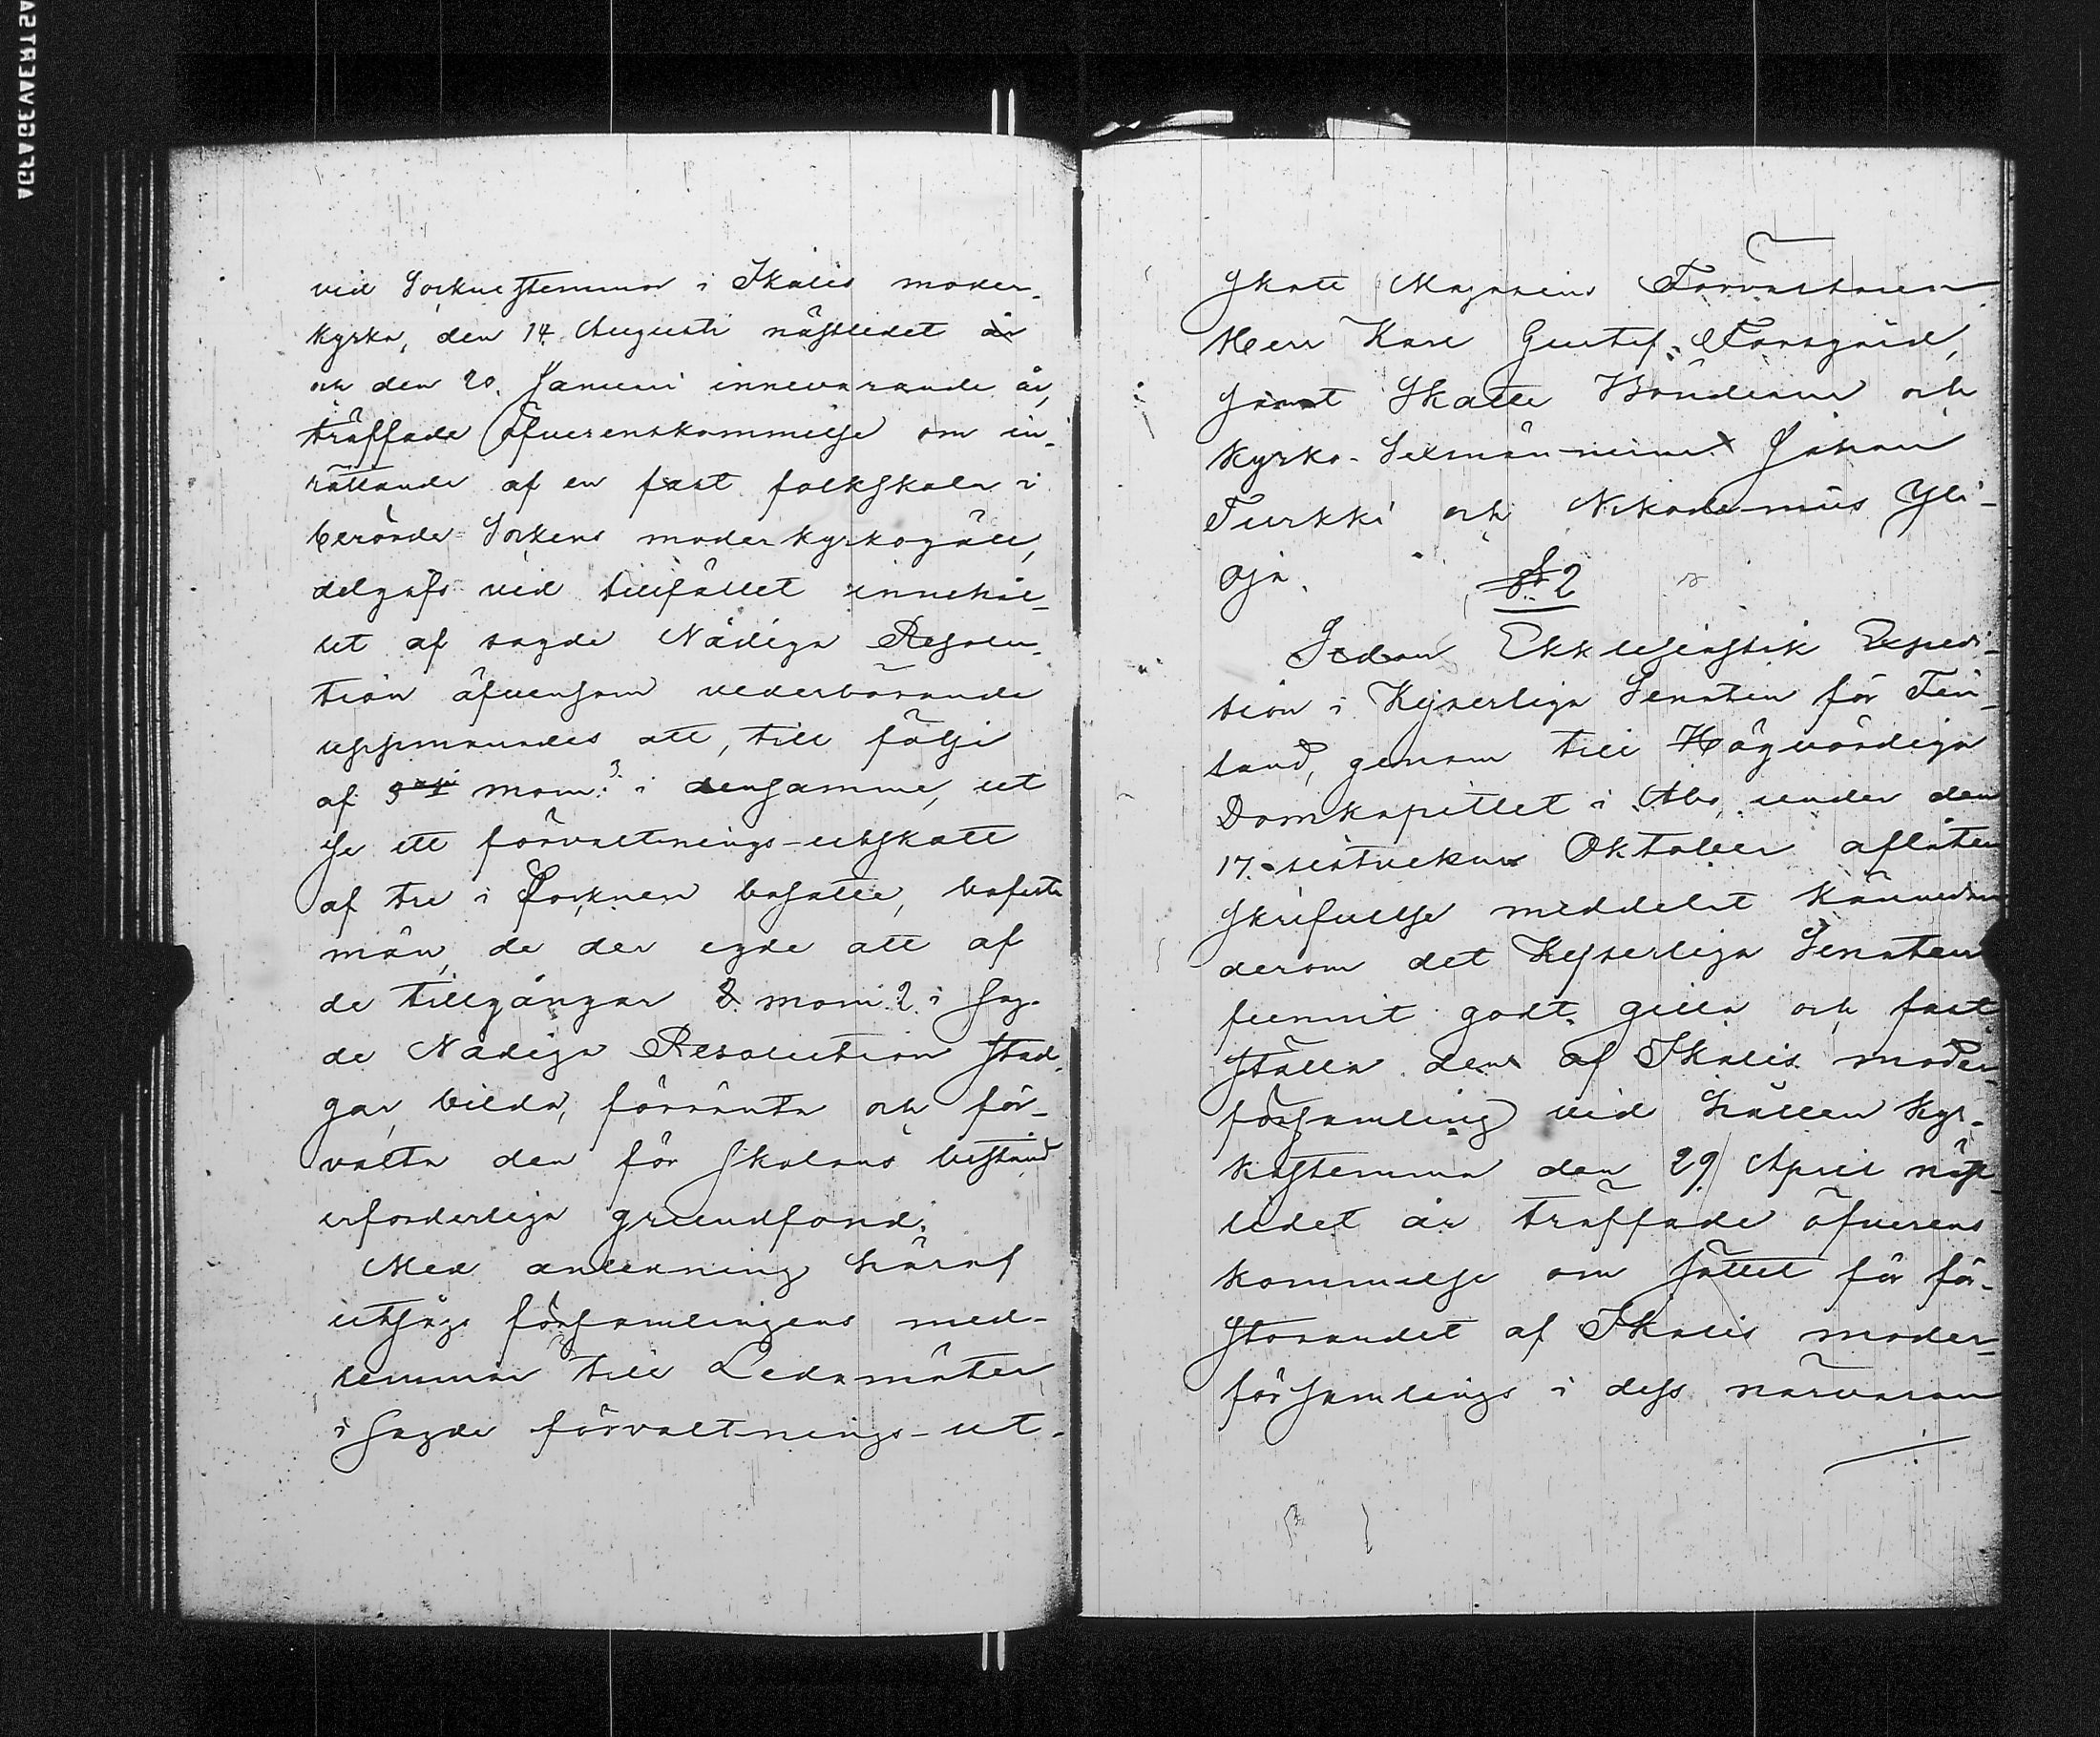 vid Sockne stemmor i Ikalis moder-
kyrka, den 14. Augusti nästledet år
och den 20. Januari innevarande år,
träffade öfverenskommelse om in-
rättande af en fast folkskola i
berörde Sockens moderkyrkogäll,
delgafs vid tillfället innehål-
let af sagde Nådiga Resolu-
tion äfvensom vederbörande
uppmanades att, till följe
af mom. 3 i densamma, ut
se ett förvaltnings-utskott
af tre i Socknen bosatte, bofaste
män, de der egde att af
de tillgångar mom. 2. i sag-
de Nådiga Resolution stad-
gar, bilda, förränta och för-
valta den för skolans bestånd
erforderliga grundfond.
Med anledning häraf
utsågs församlingens med-
lemmar till Ledamöter
i sagde förvaltnings-ut-
skott Magasins Förvaltaren
Herr Karl Gustaf
jemt Skatte Bönderne och
Kyrko-Sexmännerne Johan
Turkki och Nikodemus Yli-
oja.
§ 2
Sedan Ekklesiastik Expedi-
tion i Kejserliga Senaten för Fin-
land, genom till Högvördiga
Domkapitlet i Åbo under den
17. sistvekne Oktober aflåten
skrifvelse meddelat kännedom
derom det Kejserliga Senaten
funnit godt gilla och fast
ställa den af Ikalis moder-
församling vid hållen kyr-
kostemma den 29 April näst-
ledet år träffade öfverens
kommelse om sättet för för-
storandet af Ikalis moder-
församlings i dess närvaran